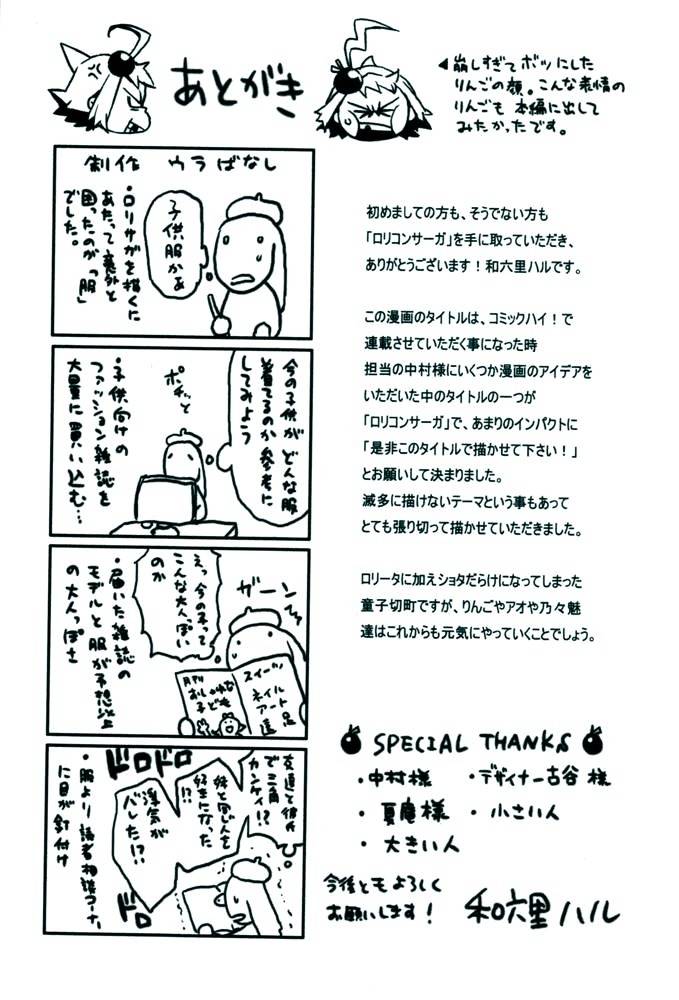 あとがき
◀崩しすぎてボツにした
りんごの顔。こんな表情の
りんごも本編に出して
みたかったです。
制作 ウラばなし
・ロリサガを描くに
あたって意外と
困ったのが「服」
でした。
子供服かぁ
今の子供がどんな服
着てるのか参考に
してみよう
ポチッと
・子供向けの
ファッション雑誌を
大量に買い込む…
ガーン
えっ今の子って
こんな大人っぽい
のか
月刊
おしゃれな
子ども
スイーツ
ネイル
アート
・届いた雑誌の
モデルと服が予想以上
の大人っぽさ
友達と彼氏
で三角
カンケイ!?
妹と同じ人を
好きになった
!?
浮気が
バレた!?
ドロドロ
ドロ
・服より読者相談コーナー
に目が釘付け
初めましての方も、そうでない方も
「ロリコンサーガ」を手に取っていただき、
ありがとうございます！和六里ハルです。
この漫画のタイトルは、コミックハイ！で
連載させていただく事になった時
担当の中村様にいくつか漫画のアイデアを
いただいた中のタイトルの一つが
「ロリコンサーガ」で、あまりのインパクトに
「是非このタイトルで描かせて下さい！」
とお願いして決まりました。
滅多に描けないテーマという事もあって
とても張り切って描かせていただきました。
ロリータに加えショタだらけになってしまった
童子切町ですが、りんごやアオや乃々魅
達はこれからも元気にやっていくことでしょう。
SPECIAL THANKS
・中村様 ・デザイナー古谷様
・夏庵様 ・小さい人
・大きい人
今後ともよろしく
お願いします！
和六里ハル